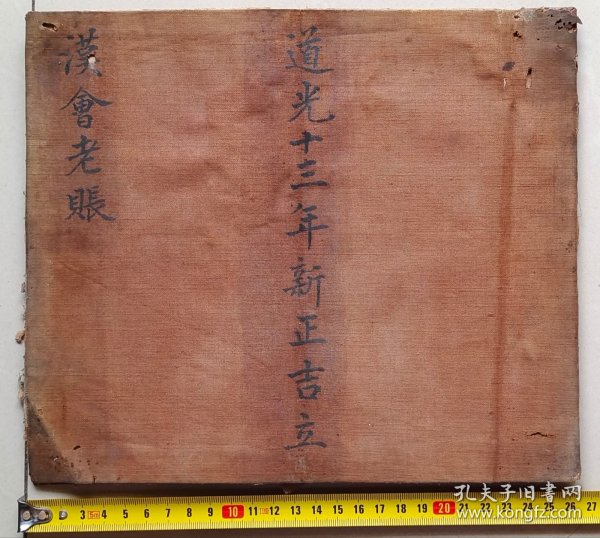 道光十三年新正吉立
漢會老賬
3 5m 4 5 6 7 8 9 10 11 12 13 14 15 16 17 18 19 20 21 22 23 24 25 26 27
孔夫子旧書网
www.kongfz.com